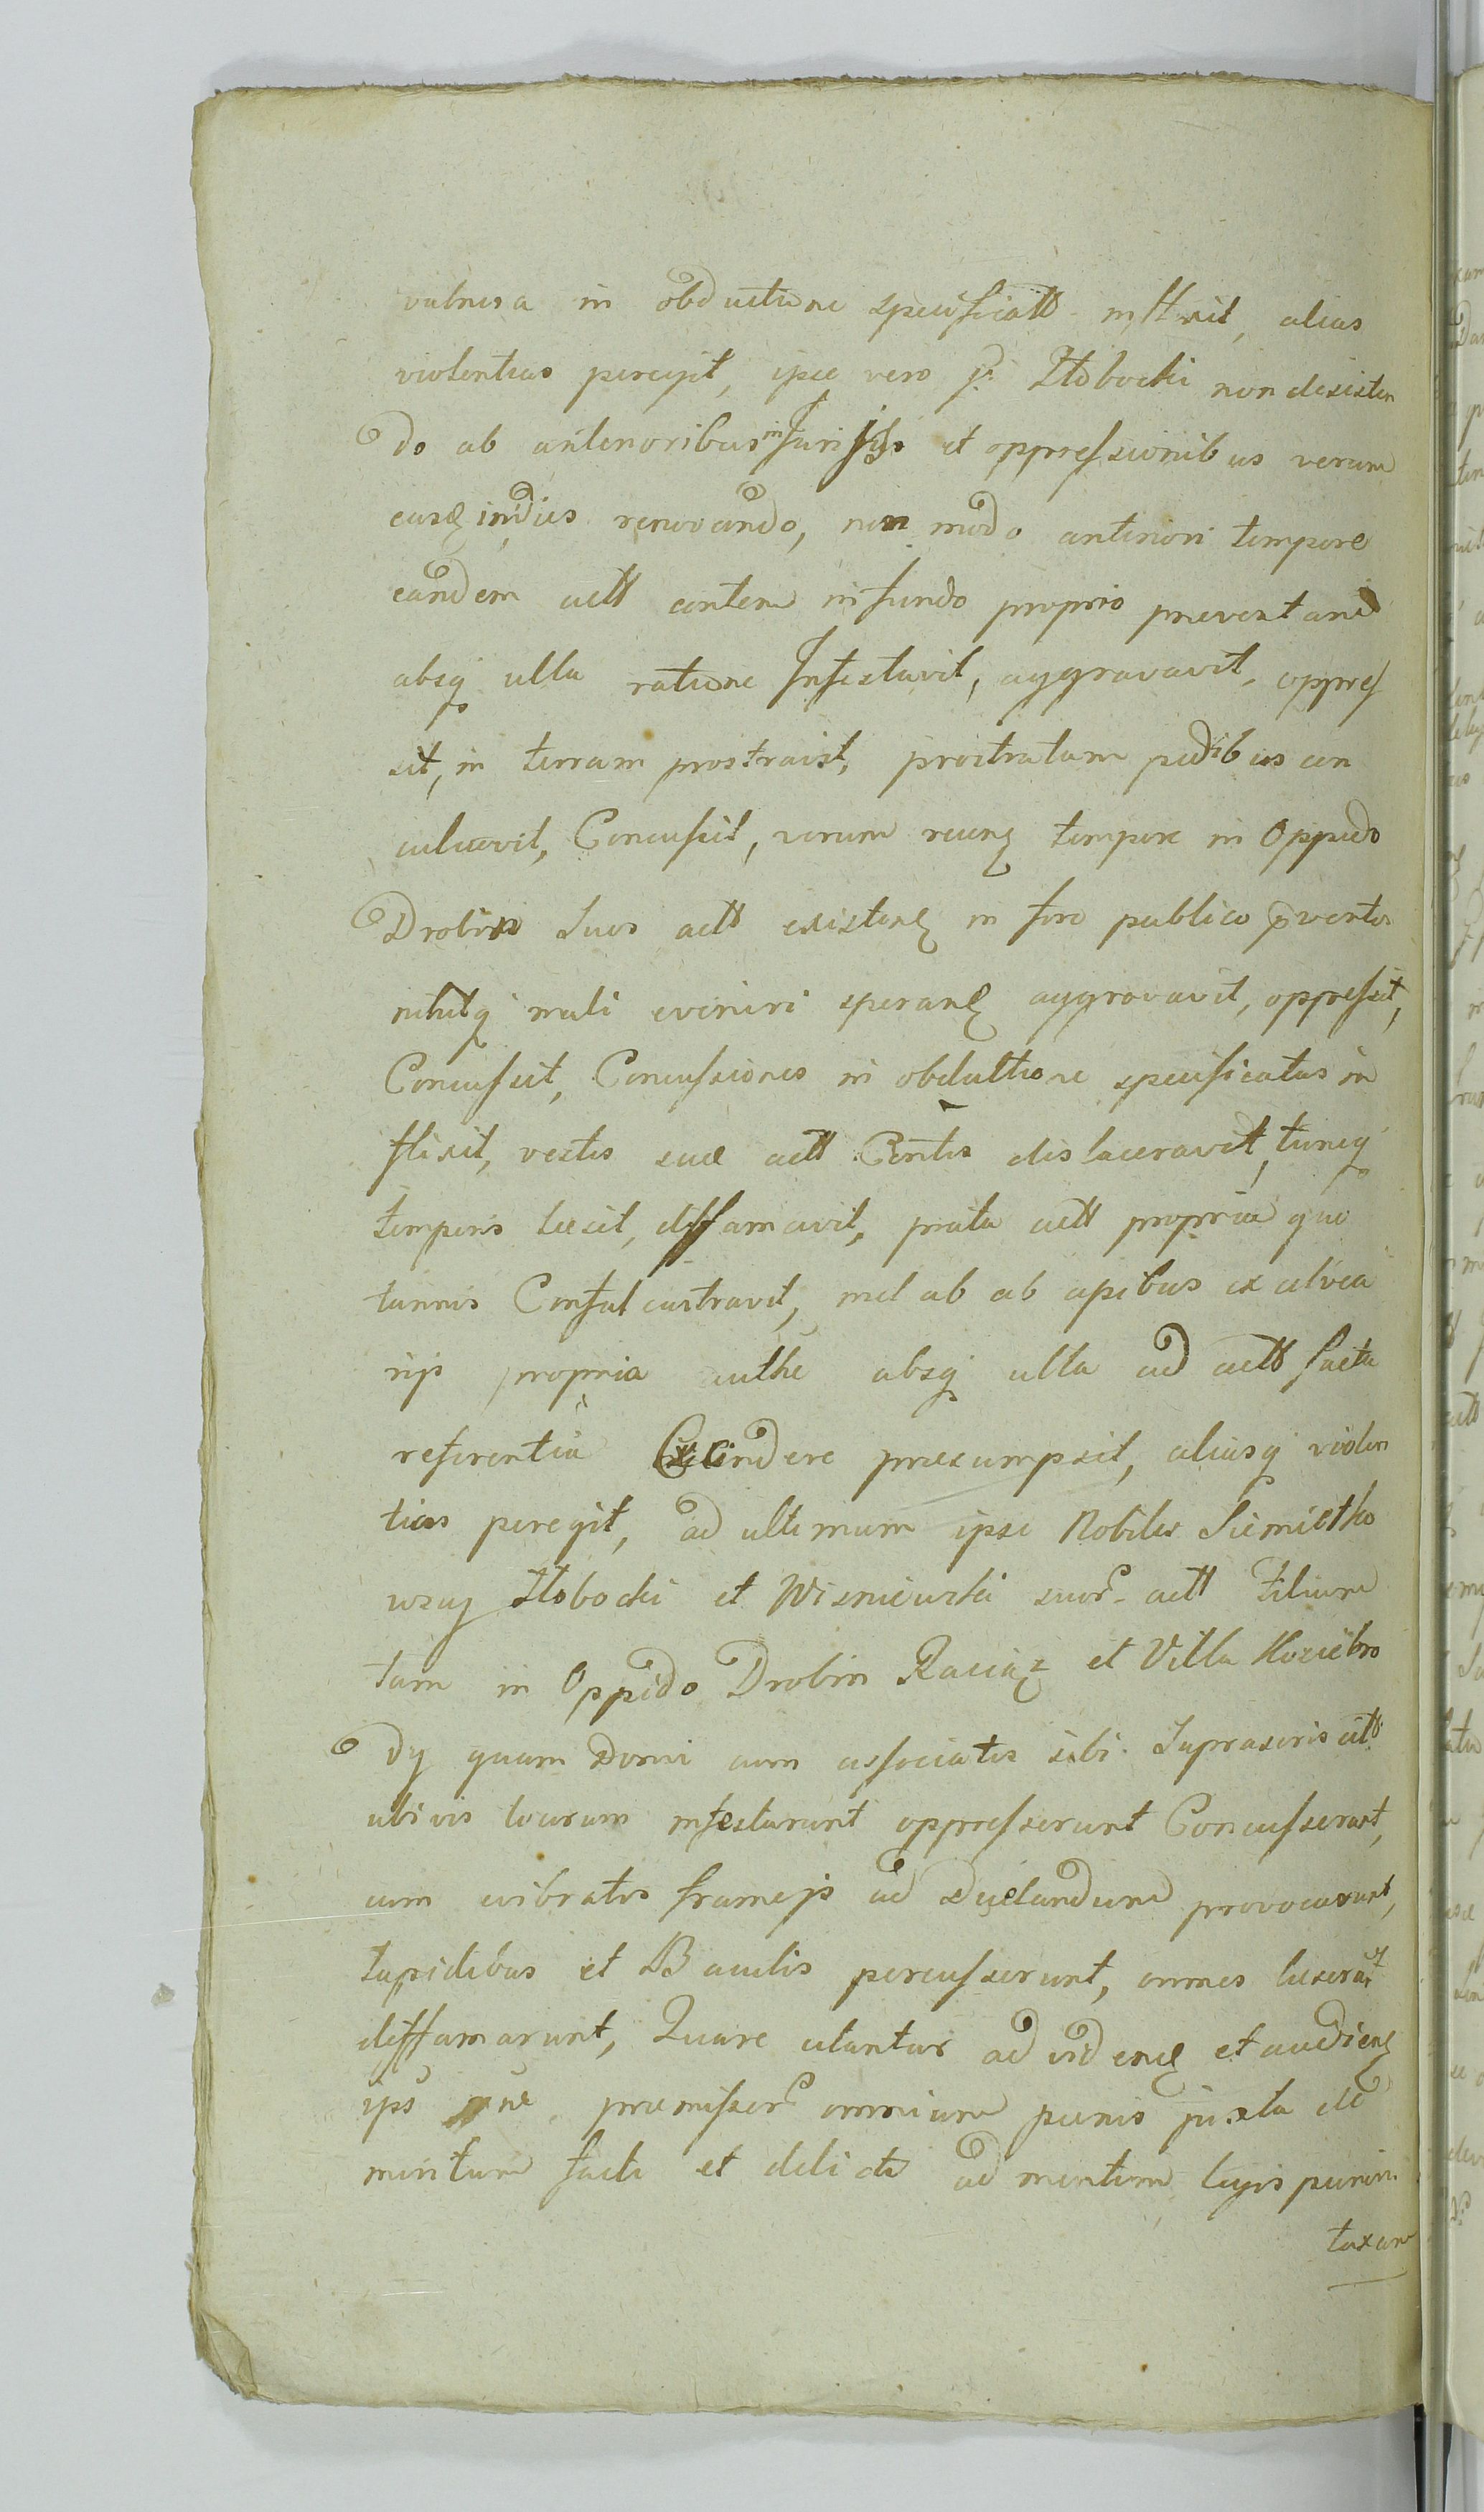 vulnera in obductione specificatt inflixit, alias
violentias peregit, ipse vero p: Złobocki non desisten
do ab anterioribus injurijs et oppressionibus verum
easq indies renovando, non modo anteriori tempore
eandem actt contem in fundo proprio
absq ulla ratione Infestavit, aggravavit, oppres
sit, in terram prostravit, prostratam pedibus con
culcavit, Concussit, verum recenq tempore in Oppido
Drobin Suos actt existenq in foro publico
nihilq mali eveniri speranq aggravavit, oppressit,
Concussit, Concussiones in obductione specificatas in
flixit, vestes suae actt dislaceravit, tuncq
temporis laesit, diffamavit, prata actt propria quo
tannis Confalcastravit, mel ab ab apibus ex alvea
rijs propria authe absq ulla ad actt facta
referentia Excindere praesumpsit, aliasq violen
tias peregit, ad ultimum ipsi Nobiles Siemiątko
wscy Złobocki et Wisniewski suor actt Filium
tam in Oppido Drobin Raciąz et Villa Koziebro
dy quam Domi cum associatis sibi Suprascris
ubivis locorum infestarunt oppresserunt Concusserunt,
cum evibratis frameis ad Duelandum provocarunt,
lapidibus et Baculis percusserunt, omnes laeserunt
diffamarunt, Quare citantur ad videnq et audienq
ips praemissor omnium paenis juxta de
meritum facti et delicti ad mentem legis puniri
taxari